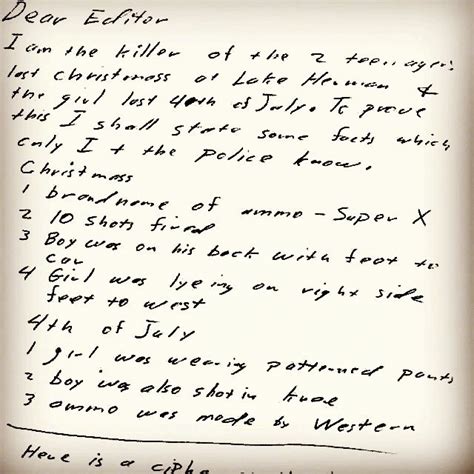 Dear Editor
I am the killer of the 2 teenagers
last Christmass at Lake Herman &
the girl last 4th of July. To prove
this I shall state some facts which
only I + the police know.
Christmass
1 brand name of ammo - Super X
2 10 shots fired
3 Boy was on his back with feet to
car
4 Girl was lyeing on right side
feet to west
4th of July
1 girl was wearing patterned pants
2 boy was also shot in knee
3 ammo was made by Western
Here is a